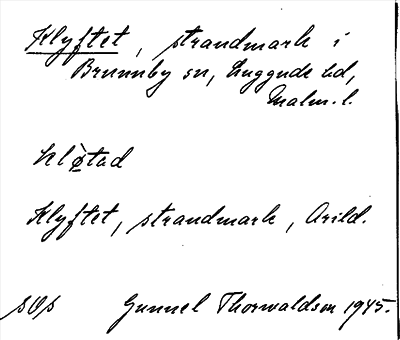 Klyftet, strandmark i
Brunnby sn, Luggude hd,
Malm. l.
Klyftet, strandmark, Arild.
Gunnel Thorwaldson 1945.